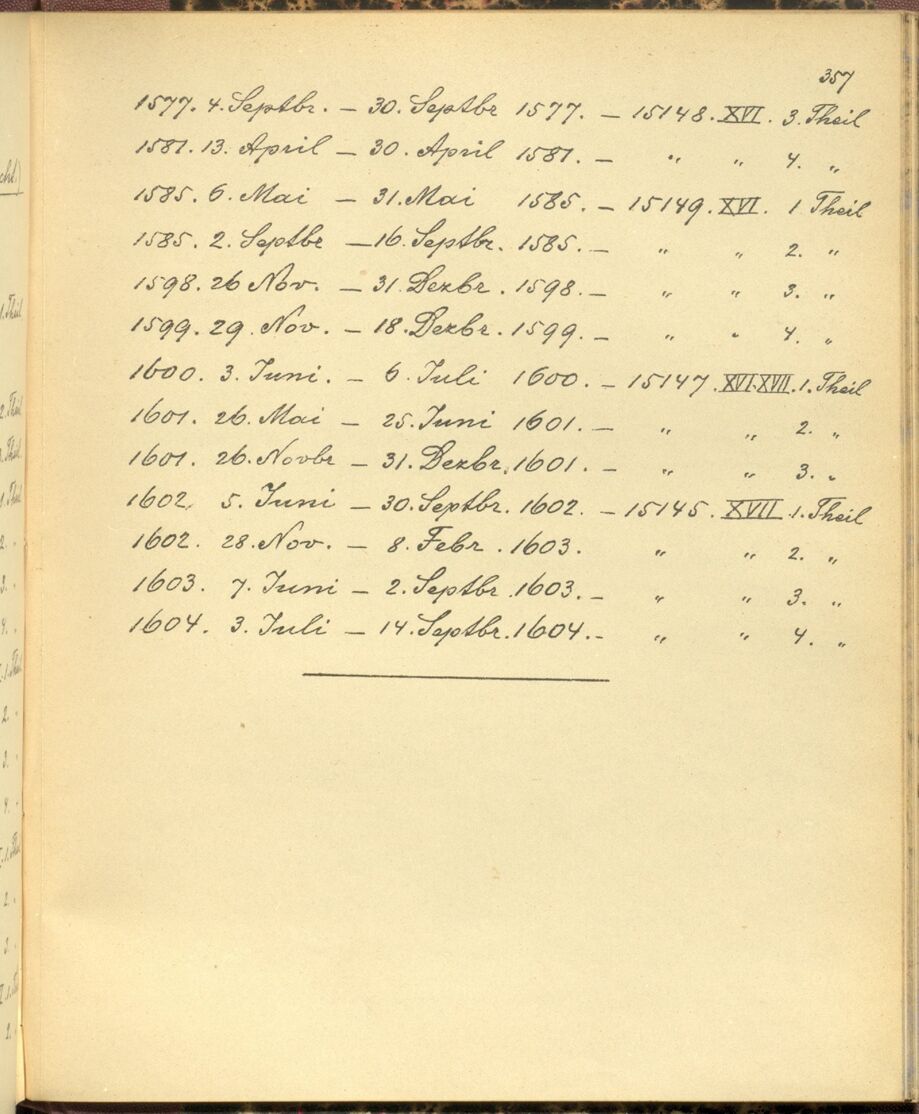 357
1577. 4. Septbr. — 30. Septbr 1577. — 15148. XVI. 3. Theil
1581. 13. April — 30. April 1581. — " " 4. "
1585. 6. Mai — 31. Mai 1585. — 15149. XVI. 1 Theil
1585. 2. Septbr — 16. Septbr. 1585. — " " 2. "
1598. 26 Nov. — 31. Dezbr. 1598. — " " 3. "
1599. 29. Nov. — 18. Dezbr. 1599. — " " 4. "
1600. 3. Juni. — 6. Juli 1600. — 15147. XVI-XVII. 1. Theil
1601. 26. Mai — 25. Juni 1601. — " " 2. "
1601. 26. Novbr — 31. Dezbr. 1601. — " " 3. "
1602. 5. Juni — 30. Septbr. 1602. — 15145. XVII. 1. Theil
1602. 28. Nov. — 8. Febr. 1603. " " 2. "
1603. 7. Juni — 2. Septbr. 1603. — " " 3. "
1604. 3. Juli — 14. Septbr. 1604. — " " 4. "